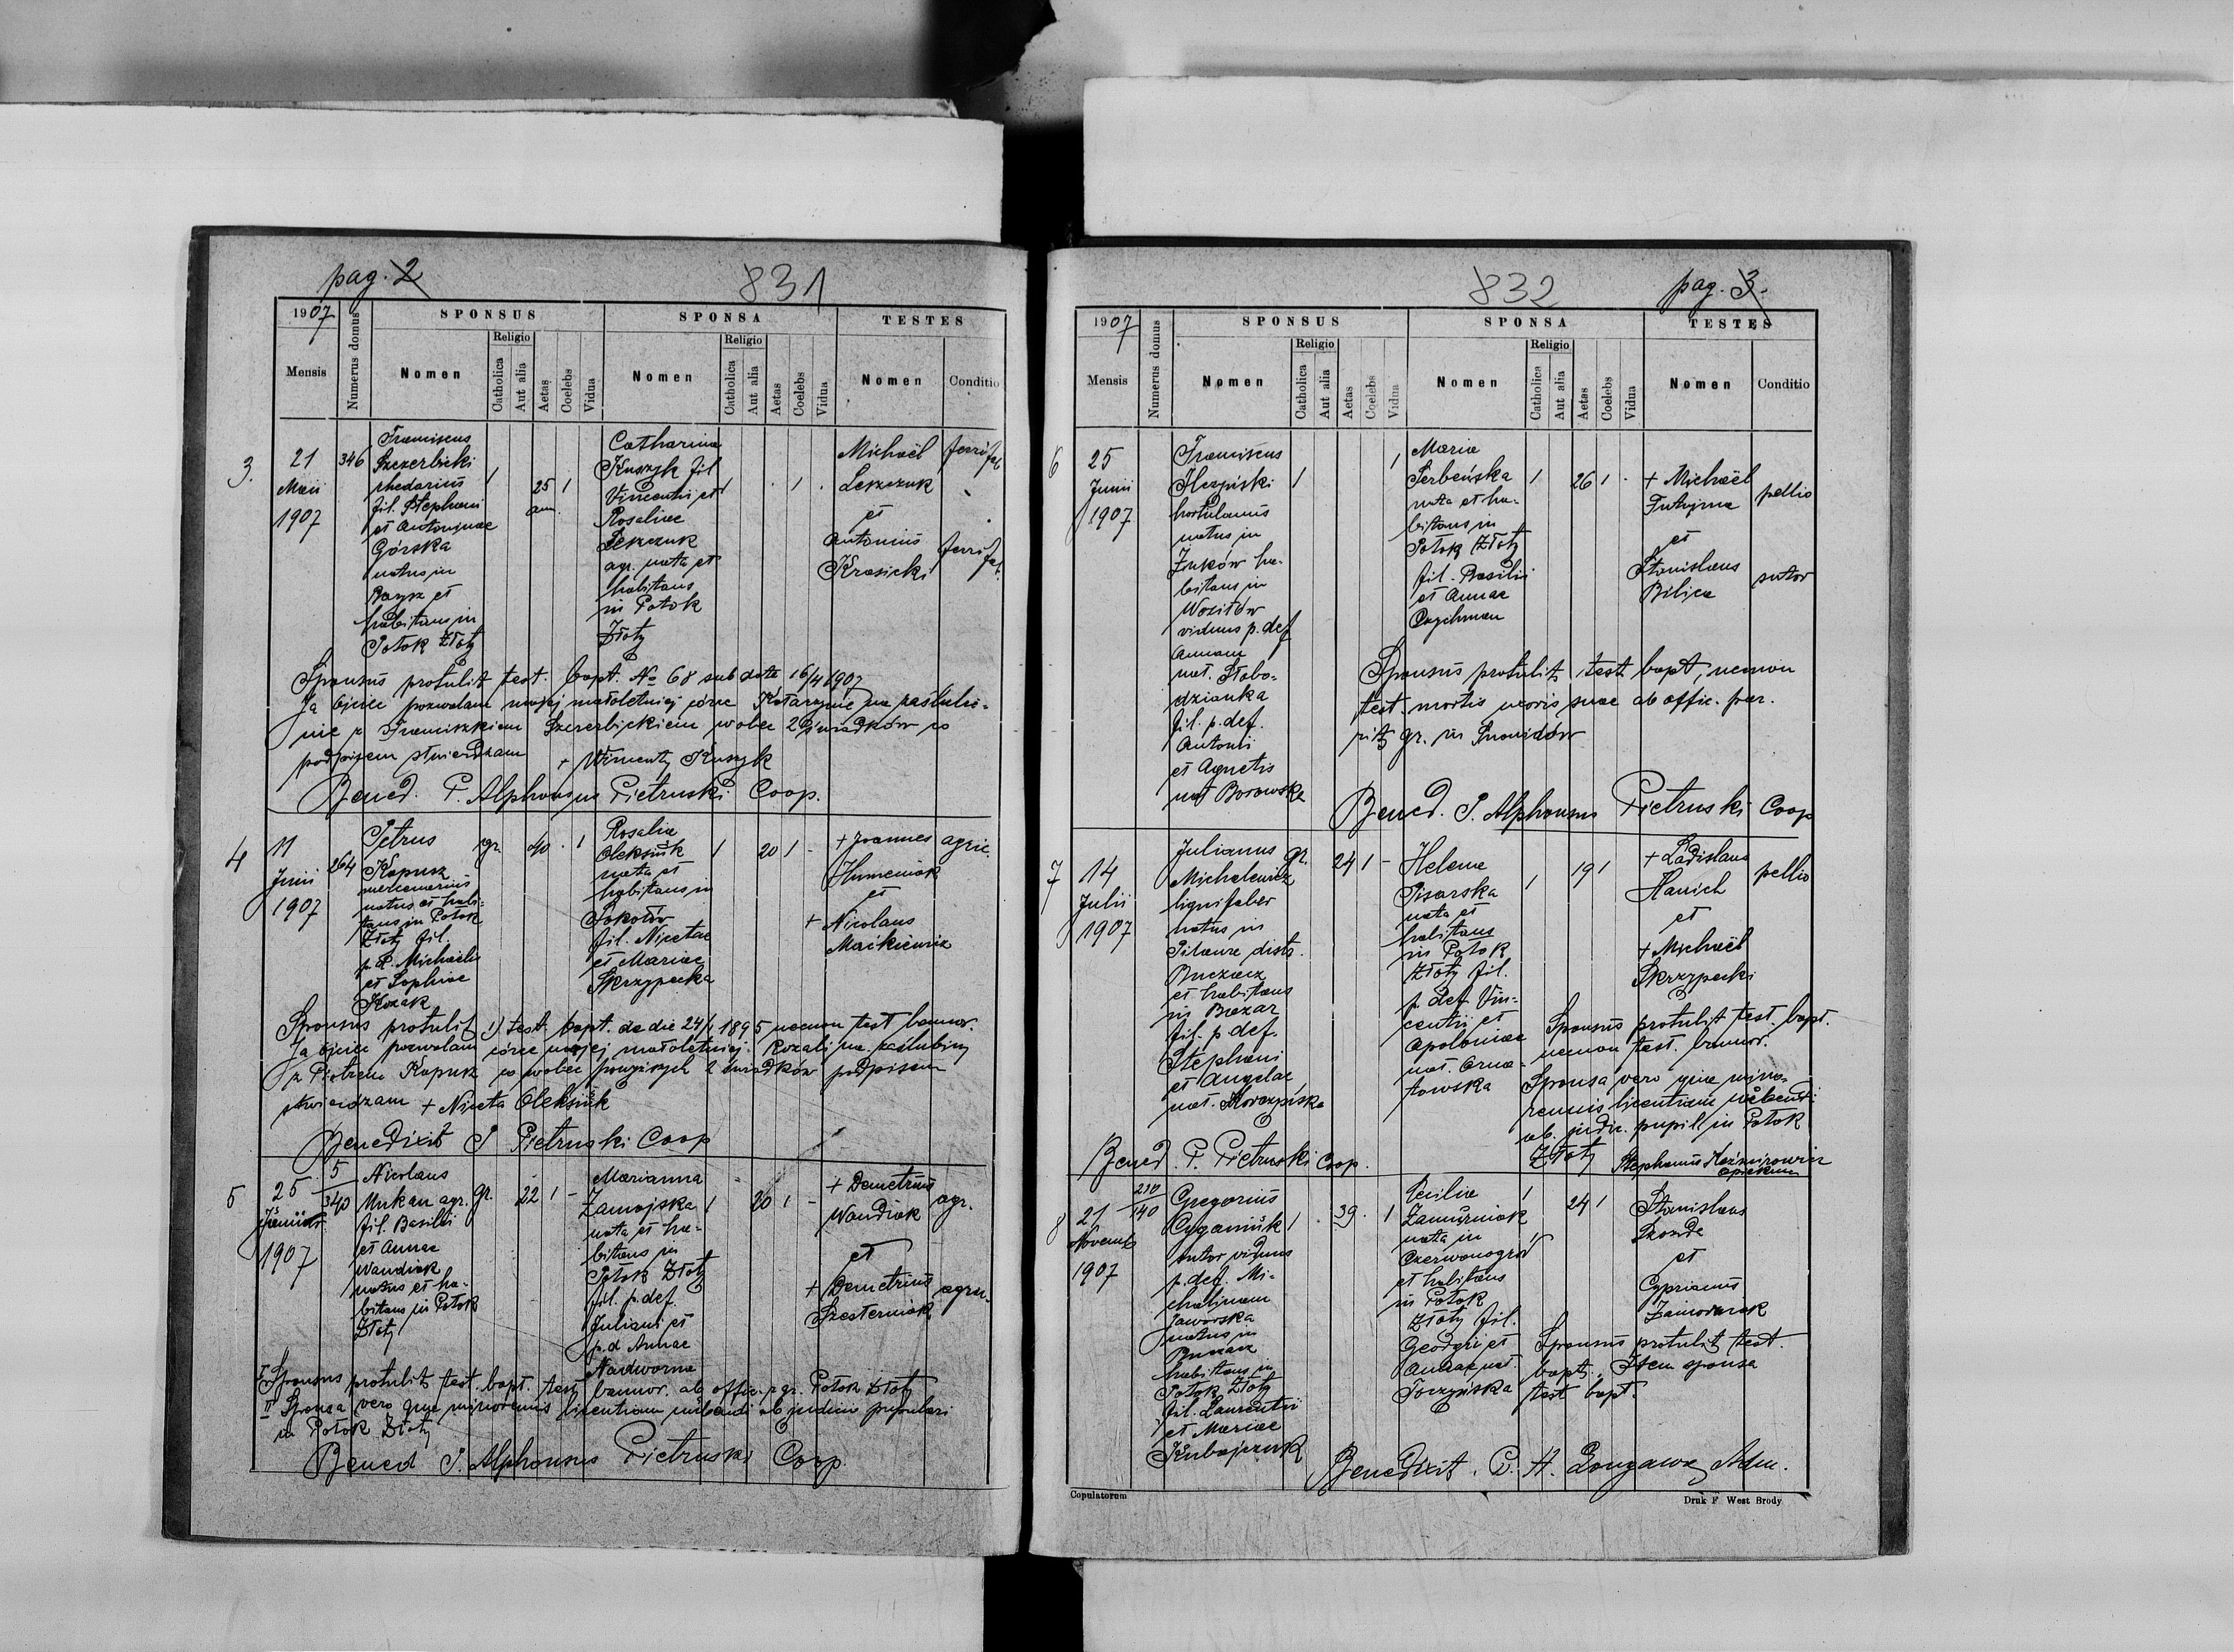 pag. 2
831
1907
Mensis
Numerus domus
SPONSUS
Nomen
Religio
Catholica
Aut alia
Aetas
Coelebs
Vidua
SPONSA
Nomen
Religio
Catholica
Aut alia
Aetas
Coelebs
Vidua
TESTES
Nomen
Conditio
3.
21
Maii
1907
346
Franciscus
Szczerbicki
rhedarius
fil. Stephani
et Antoninae
Górska
natus in
et
habitans in
Potok Złoty
1
25
ann.
1
Catharina
Kuszyk fil
Vincentii et
Rosaliae
Leszczuk
agr. nata et
habitans
in Potok
Złoty
1
1
Michaël
Leszczuk
et
Antonius
Krasicki
ferrifab
ferrifab.
Sponsus protulit test. bapt. No 68 sub dato 16/4 1907
Ja ojciec pozwalam mojej małoletniej córce Katarzynie na zaślubi-
nie z Franciszkiem Szczerbickiem wobec 2 świadków co
podpisem stwierdzam + Wincenty Kuszyk
Bened. P. Alphonsus Pietruski Coop.
4
11
Junii
1907
264
Petrus
Kapusz
mercenarius
natus et habi-
tans in Potok
Złoty fil.
p. d. Michaelis
et Sophiae
Kozak
gr.
40
1
Rosalia
Oleksiuk
nata et
habitans in
Sokołów
fil. Nicetae
et Mariae
Skrzypecka
1
20
1
-
+ Joannes
Humeniak
et
+ Nicolaus
Maćkiewicz
agric.
Sponsus protulit 1) test. bapt. de die 1895 necnon test bannor.
Ja ojciec pozwalam córce mojej małoletniej Rozalii na zaślubiny
z Piotrem Kapusz co wobec powyższych 2 świadków podpisem
stwierdzam + Niceta Oleksiuk
Benedixit P Pietruski Coop
5
25
1907
5
340
Nicolaus
Mukan agr.
fil. Basilii
et Annae
Wandiak
natus et ha-
bitans in Potok
Złoty
gr.
22
1
-
Marianna
Zamojska
nata et ha-
bitans in
Potok Złoty
fil. p. def.
Juliani et
p. d Annae
Nadworna
1
20
1
-
+ Demetrius
Wandiak
et
+ Demetrius
Szesterniak
agr.
I Sponsus protulit test. bapt. test bannor. ab offic. p gr. Potok Złoty
II Sponsa vero qua minorennis licentiam nubendi ab judicio pupillari
in Potok Złoty
Bened P. Alphonsus Pietruski Coop.
832
pag. 3.
1907
Mensis
Numerus domus
SPONSUS
Nomen
Religio
Catholica
Aut alia
Aetas
Coelebs
Vidua
SPONSA
Nomen
Religio
Catholica
Aut alia
Aetas
Coelebs
Vidua
TESTES
Nomen
Conditio
6
25
Junii
1907
Franciscus
hortulanus
natus in
Żuków ha-
bitans in
Woziłów
viduus p. def
Annam
nat. Słobo-
dzianka
fil. p. def.
Antonii
et Agnetis
nat Borowska
1
1
Maria
Serbeńska
nata et ha-
bitans in
Potok Złoty
fil. Basilii
et Annae
1
26
1
+ Michaël
Futryma
et
Stanislaus
Bilica
pellio
sutor
Sponsus protulit test. bapt, necnon
test. mortis uxoris suae ab offic. par.
rit. gr. in Snowidów
Bened. P. Alphonsus Pietruski Coop
7
14
Julii
1907
Julianus
Michalewicz
lignifaber
natus in
Pilawa distr.
Buczacz
et habitans
in Bazar
fil. p def.
Stephani
et Angelae
nat.
gr.
24
1
-
Helena
Pisarska
nata et
habitans
in Potok
Złoty fil.
p. def. Vin-
centii et
Apoloniae
nat. Orna-
towska
1
19
1
+ Ladislaus
Hanich
et
+ Michaël
Skrzypecki
pellio
Sponsus protulit test. bapt.
necnon test. bannor.
Sponsa vero qua mino-
rennis licentiam nubendi
ab judic. pupill in Potok
Złoty
Stephanus Kaźmirowicz
opiekun
Bened. P. Pietruski Coop.
8
21
Novemb
1907
210
140
Gregorius
Cyganiuk
sutor viduus
p. def. Mi-
chalinam
Jaworska
natus in
Buczacz
habitans in
Potok Złoty
fil. Laurentii
et Mariae
Kubajczuk
1
39
1
Cecilia
nata in
Czerwonogród
et habitans
in Potok
Złoty fil.
Georgii et
Annae nat.
Toczyńska
1
24
1
Stanislaus
Szozda
et
Cyprianus
Sponsus protulit test.
bapt., Item sponsa
test bapt.
Benedixit. P. H. Adm.
Copulatorum
Druk F. West Brody